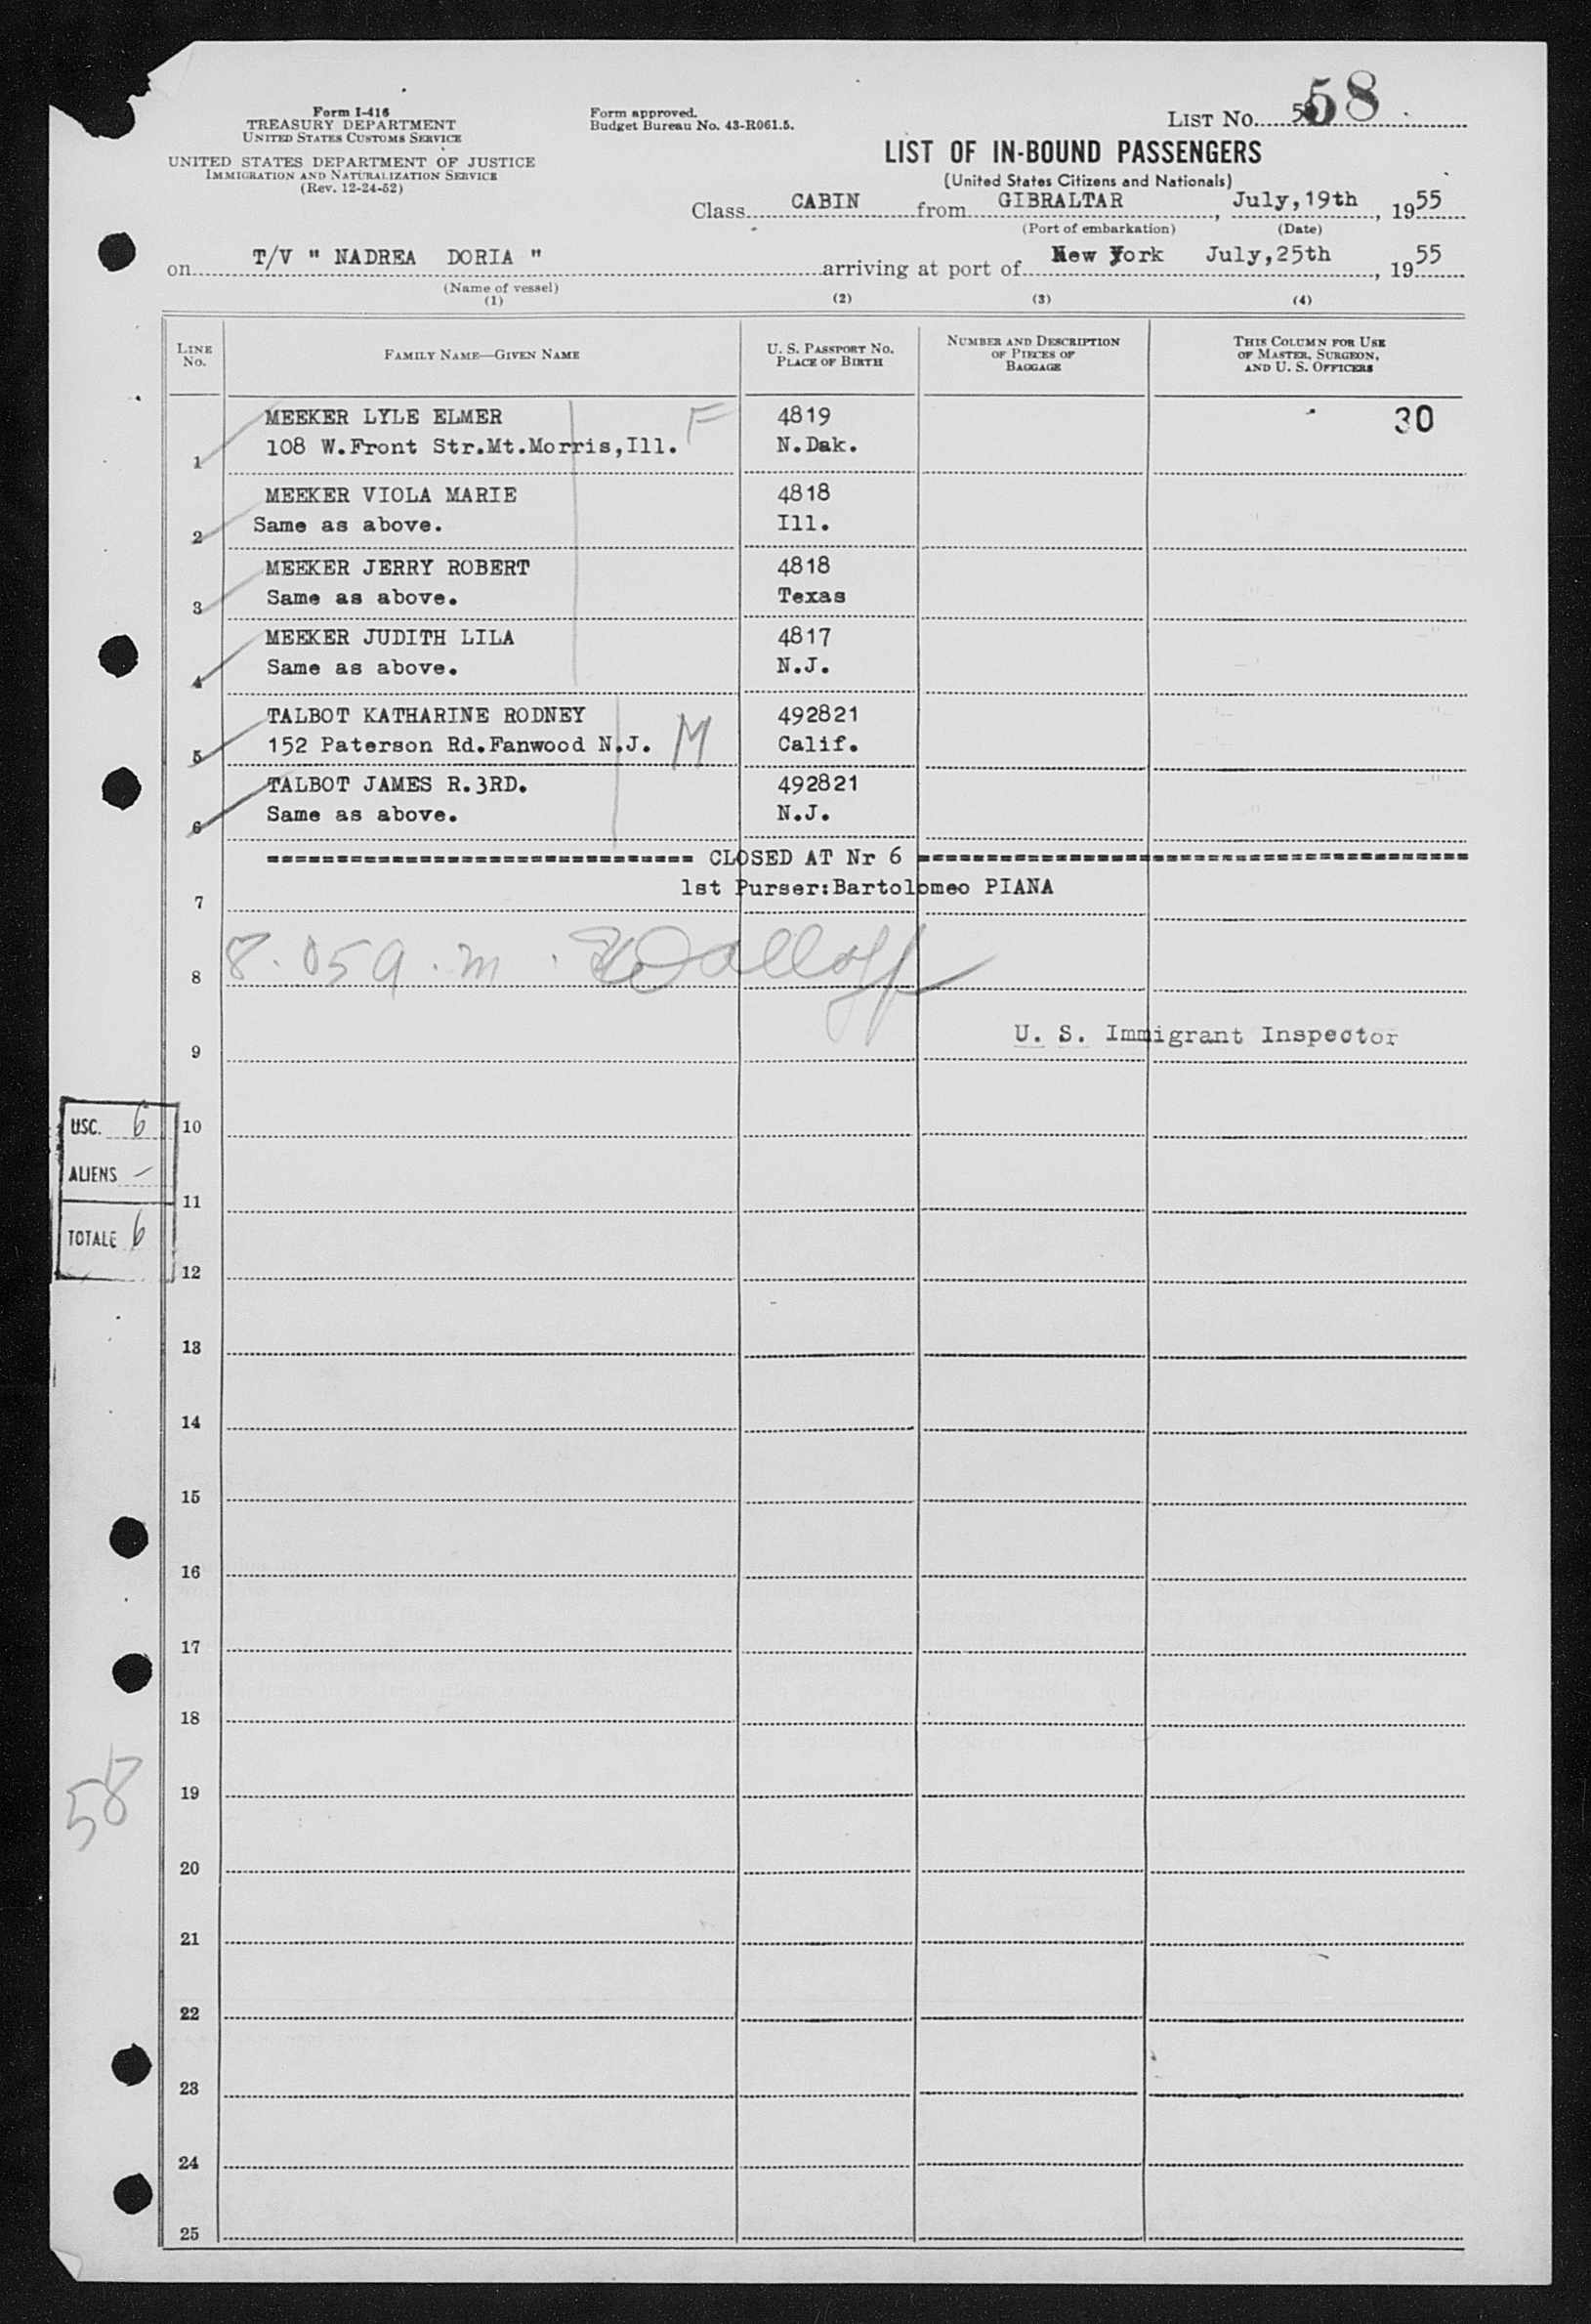 Form I-416
TREASURY DEPARTMENT
UNITED STATES CUSTOMS SERVICE
UNITED STATES DEPARTMENT OF JUSTICE
IMMIGRATION AND NATURALIZATION SERVICE
(Rev. 12-24-52)
Form approved.
Budget Bureau No. 43-R061.5.
LIST No. 58
LIST OF IN-BOUND PASSENGERS
(United States Citizens and Nationals)
Class CABIN from GIBRALTAR, July,19th, 1955
(Port of embarkation) (Date)
on T/V " NADREA DORIA " arriving at port of New York July,25th, 1955
(Name of vessel)
(1) (2) (3) (4)
LINE No. FAMILY NAME—GIVEN NAME U. S. PASSPORT No. PLACE OF BIRTH NUMBER AND DESCRIPTION OF PIECES OF BAGGAGE THIS COLUMN FOR USE OF MASTER, SURGEON, AND U. S. OFFICERS
MEEKER LYLE ELMER F 4819 30
1 108 W.Front Str.Mt.Morris,Ill. N.Dak.
MEEKER VIOLA MARIE 4818
2 Same as above. Ill.
MEEKER JERRY ROBERT 4818
3 Same as above. Texas
MEEKER JUDITH LILA 4817
4 Same as above. N.J.
TALBOT KATHARINE RODNEY 492821
5 152 Paterson Rd.Fanwood N.J. M Calif.
TALBOT JAMES R.3RD. 492821
6 Same as above. N.J.
=============================== CLOSED AT Nr 6 ========================================
1st Purser:Bartolomeo PIANA
7
8 8.05 a.m.
U. S. Immigrant Inspector
9
USC. 6
10
ALIENS -
11
TOTALE 6
12
13
14
15
16
17
18
58
19
20
21
22
23
24
25